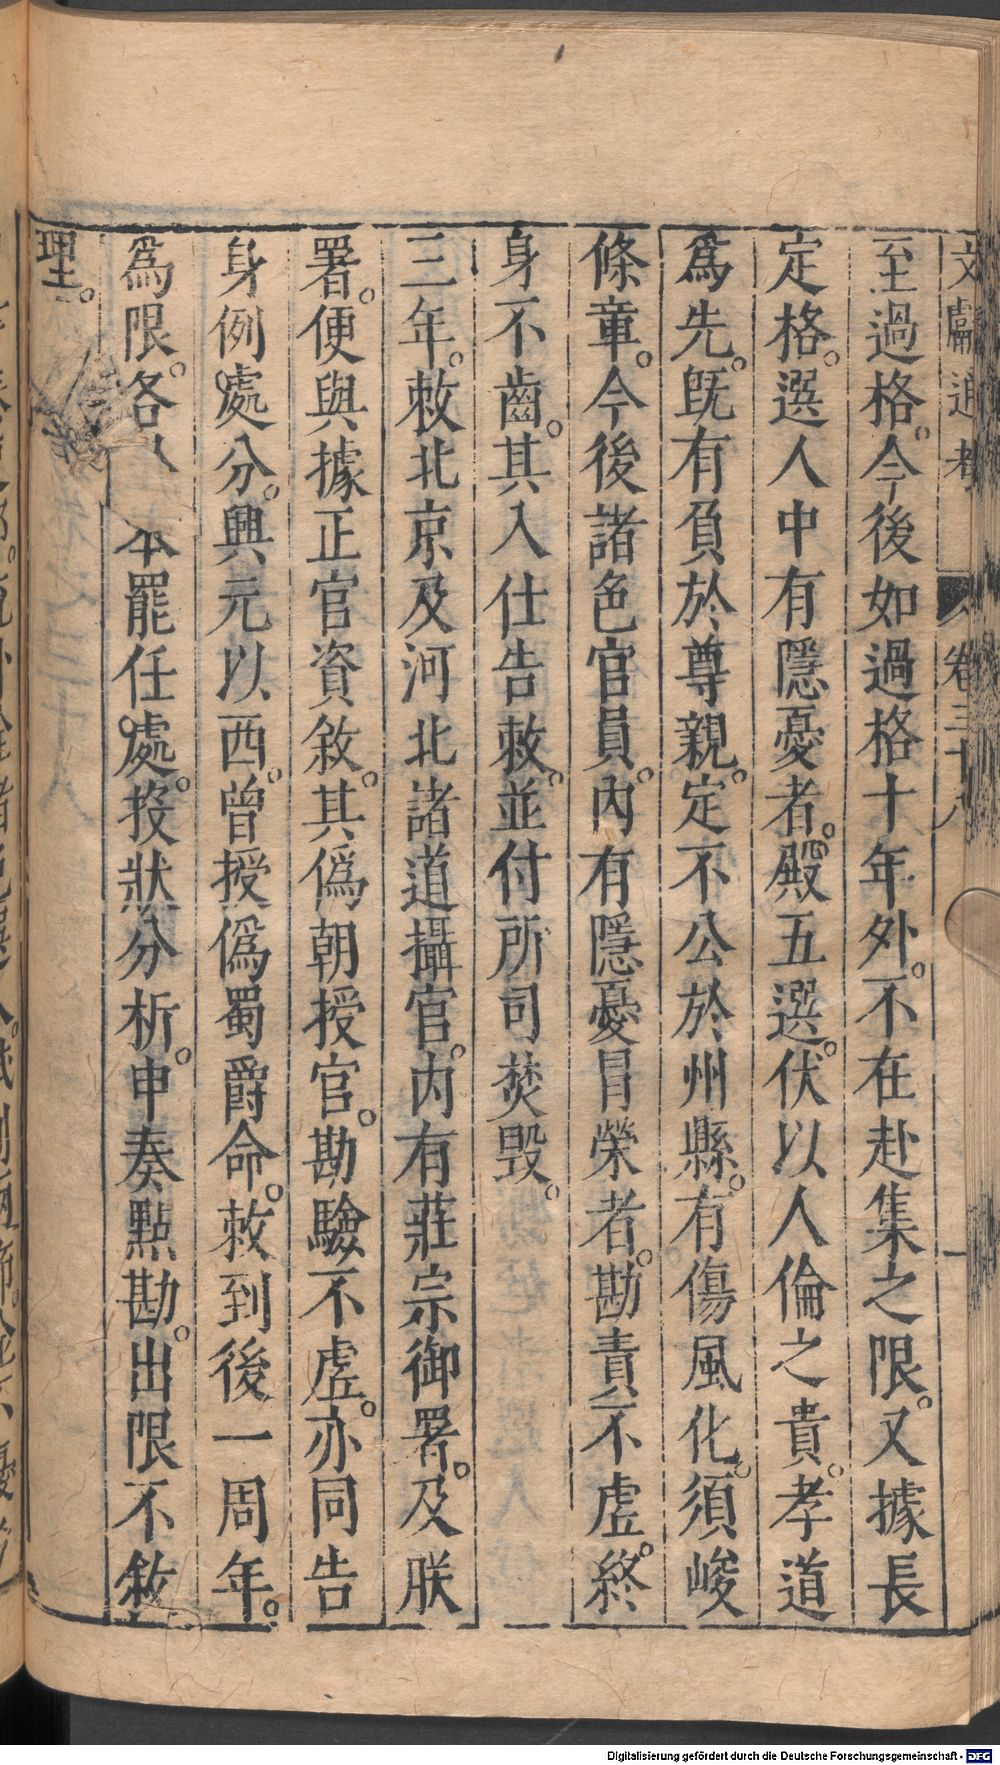 文獻通考 卷三十八 一
至過格。今後如過格十年外。不在赴集之限。又據長
定格。選人中有隱憂者。殿五選。伏以人倫之貴。孝道
爲先。旣有負於尊親。定不公於州縣。有傷風化。須峻
條童。今後諸色官員。內有隱憂冒榮者。勘責不虛。終
身不齒。其入仕告敕。並付所司焚毀。
三年。敕北京及河北諸道攝官。內有莊宗御署。及朕
署。便與據正官資敘。其僞朝授官。勘驗不虛。亦同告
身例處分。興元以西。曾授僞蜀爵命。敕到後一周年。
爲限。各本罷任處。投狀分析。申奏點勘。出限不敘
理。
Digitalisierung gefördert durch die Deutsche Forschungsgemeinschaft - DFG